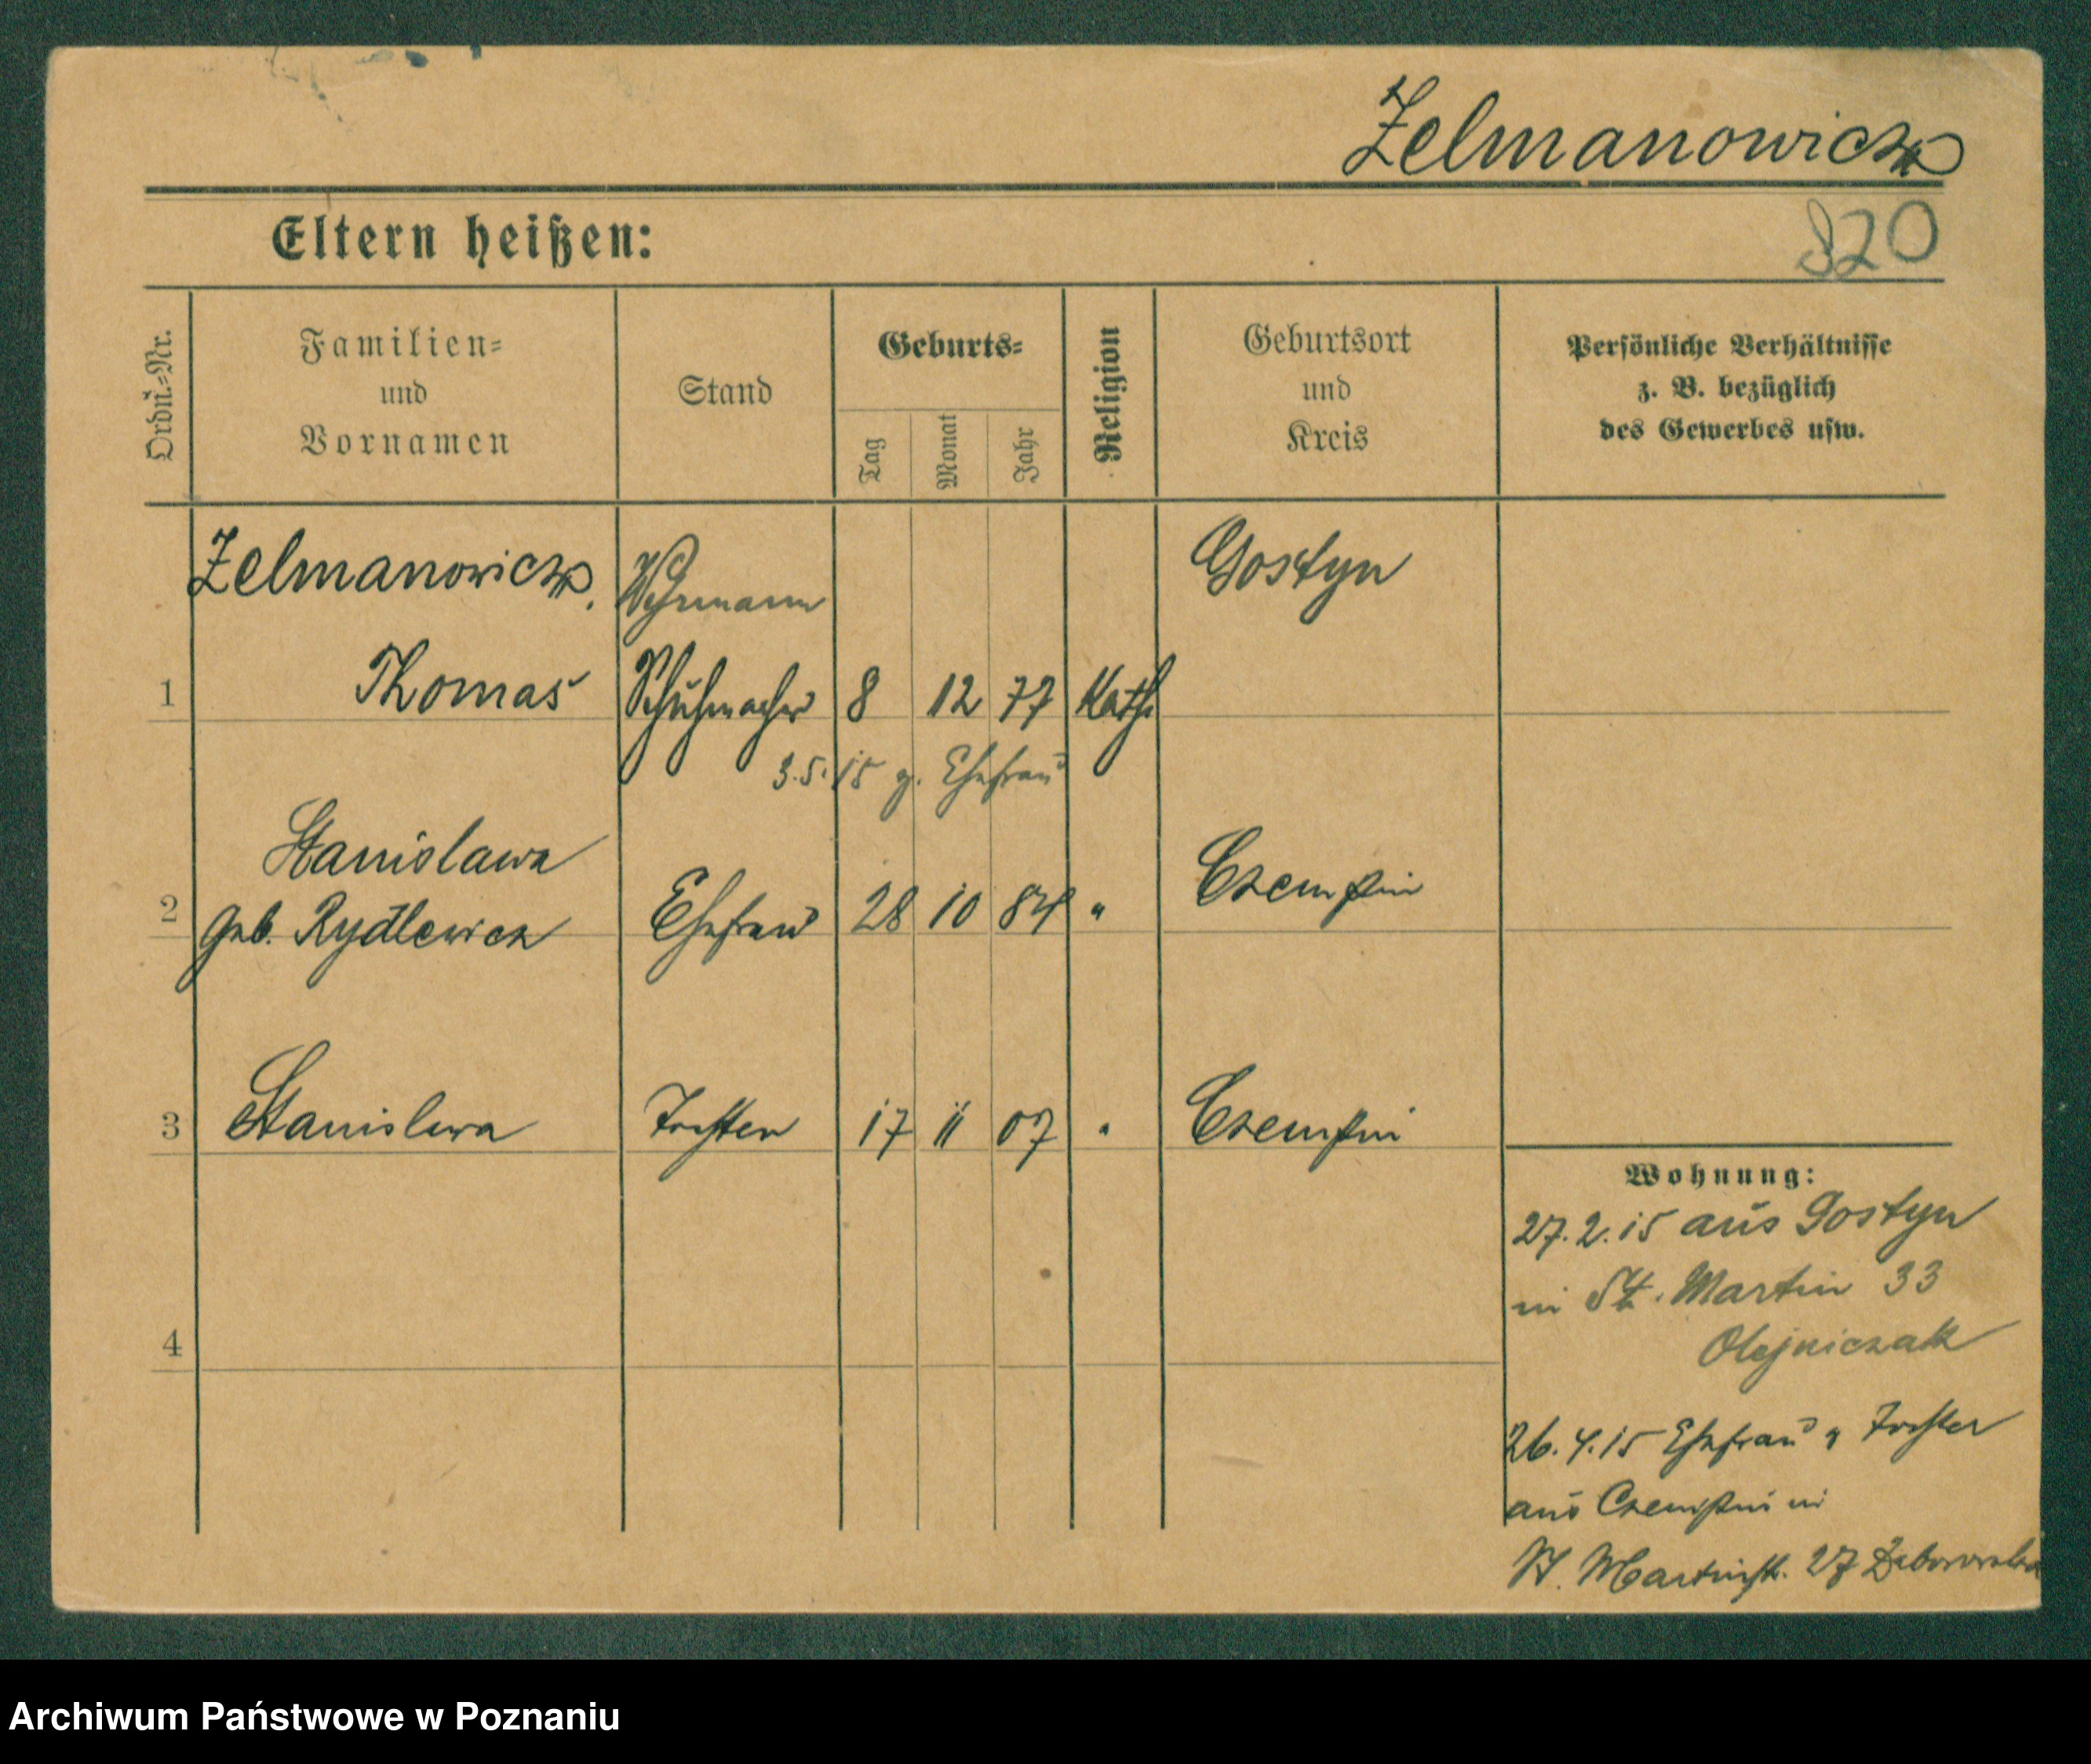 Zelmanowicz
820
Eltern heißen:
Ordn.=Nr.
Familien=
und
Vornamen
Stand
Geburts=
Tag
Monat
Jahr
Religion
Geburtsort
und
Kreis
Persönliche Verhältnisse
z. B. bezüglich
des Gewerbes usw.
Zelmanowicz, Wehrmann Gostyn
1 Thomas Schuhmacher 8 12 77 Kath
3.5.15 z. Ehefrau
Stanislawa
2 geb. Rydlewicz Ehefrau 28 10 84 " Czempin
3 Stanislawa Tochter 17 11 07 " Czempin
4
Wohnung:
27.2.15 aus Gostyn
in St. Martin 33
Olejniczak
26.4.15 Ehefrau u Tochter
aus Czempin in
St. Martinstr. 27
Archiwum Państwowe w Poznaniu